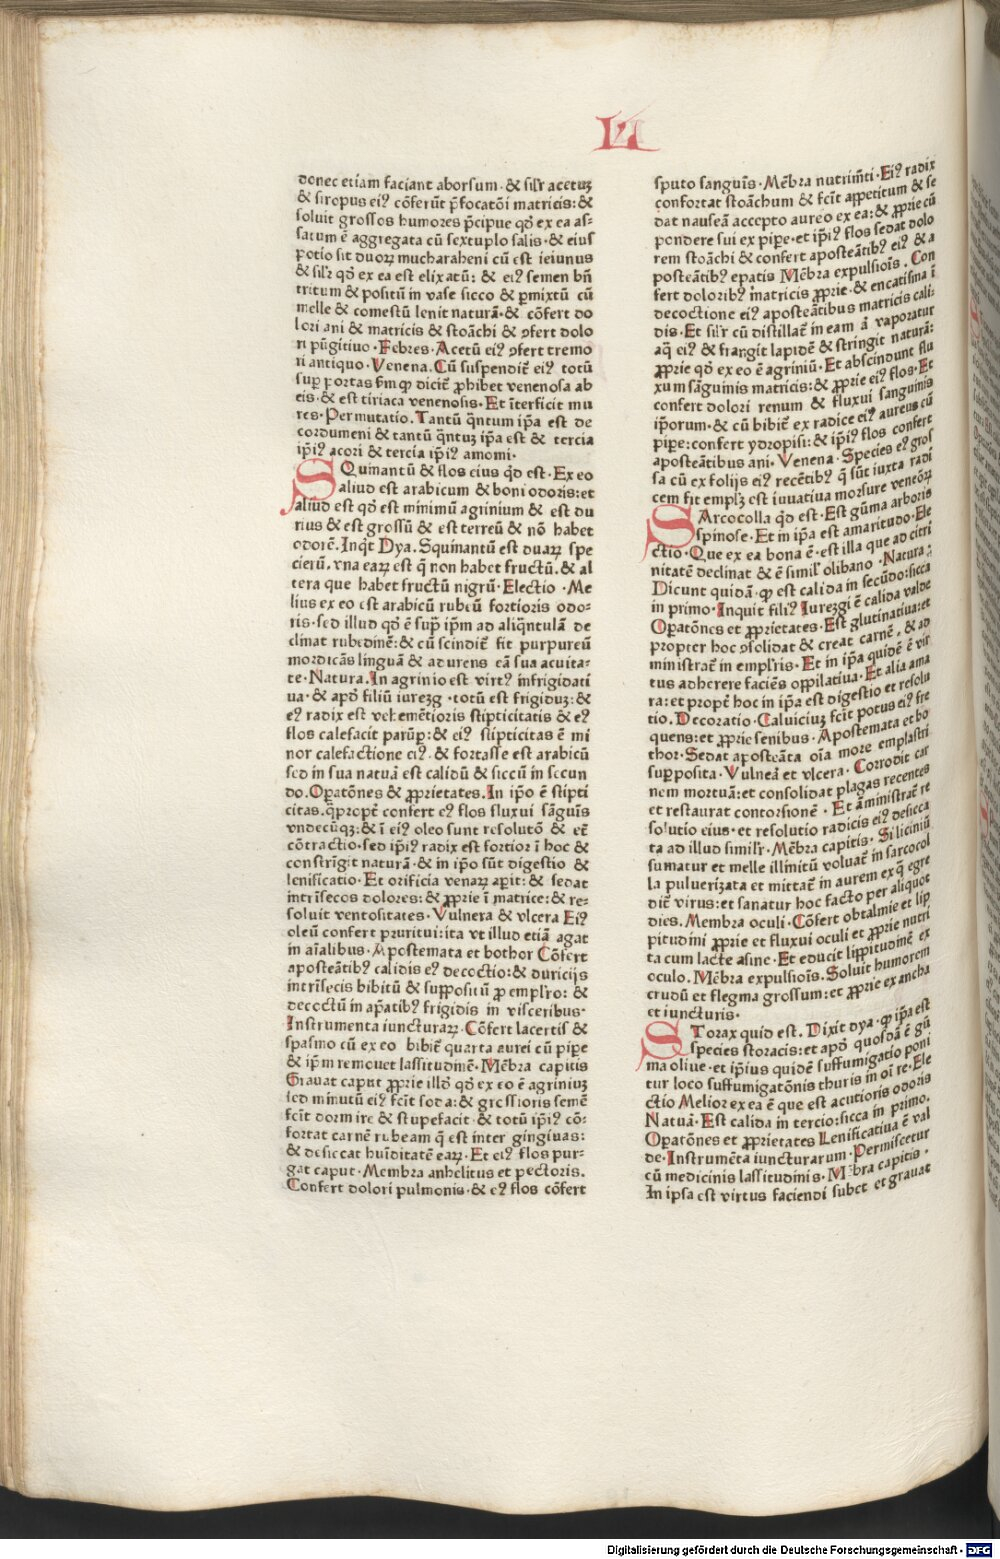 LII
donec etiam faciant aborsum· & sil'r acetuꝫ
& siropus eiꝰ cōferūt p̄focatōi matricis: &
soluit grossos humores p̄cipue qđ ex ea as-
satum ē aggregata cū sextuplo salis· & eius
potio sit duorꝝ mucharaheni cū est ieiunus
& sil'r qđ ex ea est elixatū: & eiꝰ semen bn̄
tritum & positū in vase sicco & ꝑmixtū cū
melle & comestū lenit naturā· & cōfert do
lori ani & matricis & stoāchi & ꝯfert dolo
ri pūgitiuo · Febres · Acetū eiꝰ ꝯfert tremo
ri antiquo · Venena. Cū suspendit̄ eiꝰ totū
suꝑ portas ſm ꝙ dicit̄ ꝓhibet venenosa ab
eis· & est tiriaca venenosis. Et īterficit mu
res· Permutatio. Tantū q̄ntum ip̄a est de
cordumeni & tantū q̄ntuꝫ ip̄a est & tercia
ip̄iꝰ acori & tercia ip̄iꝰ amomi·
SQuinantū & flos eius qđ est· Ex eo
aliud est arabicum & boni odoris: et
aliud est qđ est minimū agrinium & est du
rius & est grossū & est terreū & nō habet
odorē. Inq̄t Dya. Squinantū est duaꝝ spe
cierū. vna eaꝝ est q̄ non habet fructū. & al
tera que habet fructū nigrū· Electio · Me
lius ex eo est arabicū rubeū fortioris odo-
ris· sed illud qđ ē suꝑ ip̄m ad aliq̄ntulā de
clinat rubedinē: & cū scindit̄ fit purpureū
mordicās linguā & adurens eā sua acuita-
te · Natura. In agrinio est virtꝰ infrigidati
ua· & apđ filiū iurezg · totū est frigiduꝫ: &
eꝰ radix est vehemētioris stipticitatis & eꝰ
flos calefacit parūꝑ: & eiꝰ stipticitas ē mi
nor calefactione eiꝰ. & fortasse est arabicū
sed in sua natuā est calidū & siccū in secun
do. Oꝑatōnes & ꝓprietates. In ip̄o ē stipti
citas. q̄ꝓpt̄ confert eꝰ flos fluxui sāguīs
vndecūqꝫ: & ī eiꝰ oleo sunt resolutō & et̄
cōtractio· sed ip̄iꝰ radix est fortior ī hoc &
constrīgit naturā· & in ip̄o sūt digestio &
lenificatio· Et orificia venaꝝ aꝑit: & sedat
intrīsecos dolores: & ꝓprie ī matrice: & re-
soluit ventositates· Vulnera & vlcera Eiꝰ
oleū confert pruritui: ita vt illud etiā agat
in aīalibus· Apostemata et bothor Cōfert
aposteātibꝰ calidis eꝰ decoctio: & duricijs
intrīsecis bibitū & suppositū ꝓ emplr̄o: &
decoctū in apatibꝰ frigidis in visceribus·
Instrumenta iuncturaꝝ· Cōfert lacertis &
spasmo cū ex eo bibit̄ quarta aurei cū pipe
& ip̄m remouet lassitudinē· Mēbra capitis
Grauat caput ꝓprie illđ qđ ex eo ē agriniuꝫ
sed minutū eiꝰ fcīt soda: & grossioris semē
fcīt dormire & stupefacit· & totū ip̄iꝰ cō-
fortat carnē rubeam q̄ est inter gingiuas:
& desiccat huīditatē eaꝝ· Et eiꝰ flos pur-
gat caput· Membra anhelitus et pectoris.
Confert dolori pulmonis· & eꝰ flos cōfert
sputo sanguīs · Mēbra nutrim̄ti· Eiꝰ radix
confortat stoāchum & fcīt appetitum & se
dat nauseā accepto aureo ex ea: & ꝓprie cū
pondere sui ex piꝑe· et ip̄iꝰ flos sedat dolo
rem stoāchi & confert aposteātibꝰ eiꝰ & a
posteātibꝰ epatis Mēbra expulsioīs. Con
fert doloribꝰ matricis ꝓprie· & encatisma ī
decoctione eiꝰ aposteātibus matricis cali:
dis· Et sil'r cū distillat̄ in eam ā vaporatur
aq̄ eiꝰ & frangit lapidē & stringit naturā:
ꝓprie qđ ex eo ē agriniū· Et abscindunt flu
xum sāguinis matricis: & ꝓprie eiꝰ flos· Et
confert dolori renum & fluxui sanguinis
ip̄orum· & cū bibit̄ ex radice eiꝰ aureus cū
piꝑe: confert ydropisi: & ip̄iꝰ flos confert
aposteātibus ani· Venena · Species eꝰ gros
sa cū ex folijs eiꝰ recētibꝰ q̄ sūt iuxta radi
cem fit emplꝝ est iuuatiua morsure veneōꝝ
SArcocolla qđ est· Est gūma arboris
spinose· Et in ip̄a est amaritudo· Ele
ctio· Que ex ea bona ē· est illa que ad citri
nitatē declinat & ē simil' olibano · Natura:
Dicunt quidā· ꝙ est calida in secūdo: sicca
in primo· Inquit filiꝰ Iurezgi ē calida valde
Oꝑatōnes et ꝓprietates· Est glutinatiua: et
propter hoc ꝯsolidat & creat carnē. & ad
ministrat̄ in emplr̄is· Et in ip̄a quidē ē vir
tus adherere faciēs oppilatiua· Et alia ama
ra: et propt̄ hoc in ip̄a est digestio et resolu
tio. Decoratio · Caluiciuꝫ fcīt potus eiꝰ fre
quens: et ꝓprie senibus · Apostemata et bo
thor· Sedat aposteāta oīa more emplastri
suꝑposita · Vulneā et vlcera· Corrodit car
nem mortuā: et consolidat plagas recentes
et restaurat contorsionē · Et aministrat̄ re
solutio eius· et resolutio radicis eiꝰ desicca
ta ad illud simil'r· Mēbra capitis· Si liciniū
sumatur et melle illinitū voluat̄ in sarcocol
la puluerizata et mittat̄ in aurem ex q̄ egre
dit̄ virus: et sanatur hoc facto per aliquot
dies. Membra oculi · Cōfert obtalmie et lip
pitudini ꝓprie et fluxui oculi et ꝓprie nutri
ta cum lacte asine· Et educit lippitudinē ex
oculo. Mēbra expulsioīs. Soluit humorem
crudū et flegma grossum: et ꝓprie ex ancha
et iuncturis·
STorax quid est. Dixit dya· ꝙ ip̄a est
species storacis: et apđ quosdā ē gū
ma oliue· et ip̄ius quidē suffumigatio poni
tur loco suffumigatōnis thuris in oī re· Ele
ctio Melior ex ea ē que est acutioris odoris
Natuā· Est calida in tercio: sicca in primo.
Oꝑatōnes et ꝓprietates Lenificatiua ē val
de· Instrumēta iuncturarum· Permiscetur
cū medicinis lassitudinis· Mēbra capitis·
In ipsa est virtus faciendi subet et grauat
Digitalisierung gefördert durch die Deutsche Forschungsgemeinschaft - DFG